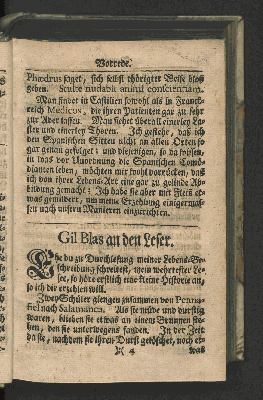 Vorrede.
Phædrus saget, sich selbst thörigter Weise bloß
geben. Stulte nudabit animi conscientiam.
Man findet in Castilien sowohl als in Franck-
reich Medicos, die ihren Patienten gar zu sehr
zur Ader lassen. Man siehet überall einerley La-
ster und einerley Thoren. Ich gestehe, daß ich
den Spanischen Sitten nicht an allen Orten so
gar genau gefolget: und diejenigen, so da wissen,
in was vor Unordnung die Spanischen Comö-
dianten leben, möchten mir wohl vorrücken, daß
ich von ihrer Lebens-Art eine gar zu gelinde Ab-
bildung gemacht: Ich habe sie aber mit Fleiß et-
was gemildert, um meine Erzehlung einigermas-
sen nach unsern Manieren einzurichten.
Gil Blas an den Leser.
Ehe du zu Durchlesung meiner Lebens-Be-
schreibung schreitest, mein wehrtester Le-
ser, so höre erstlich eine kleine Historie an,
so ich dir erzehlen will.
Zwey Schüler giengen zusammen von Penna-
fiel nach Salamanca. Als sie müde und durstig
waren, blieben sie etwas an einem Brunnen ste-
hen, den sie unterweges fanden. In der Zeit
da sie, nachdem sie ihren Durst gelöschet, noch et-
)( 4
was